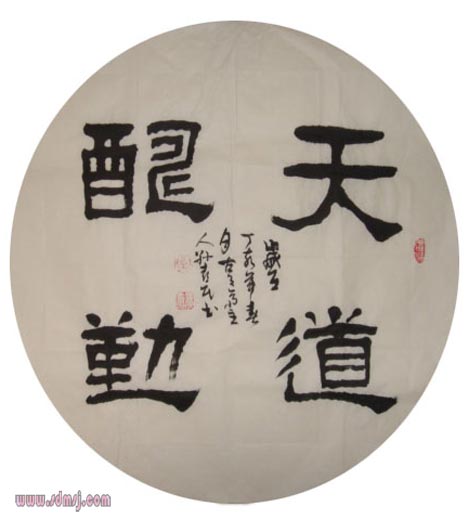 天道
酬勤
歲在
丁亥年春
www.sdmsj.com